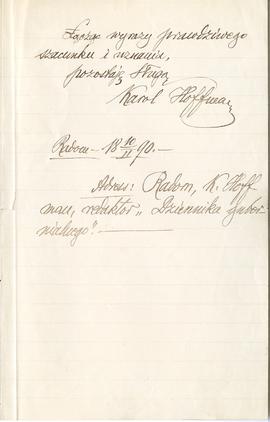 Łącząc wyrazy prawdziwego
szacunku i uznania,
pozostaję sługą
Karol Hoffman
Radom - 18 10/11 90. -
Adres: Radom, K. Hoff
man, redaktor „Dziennika guber
nialnego". -